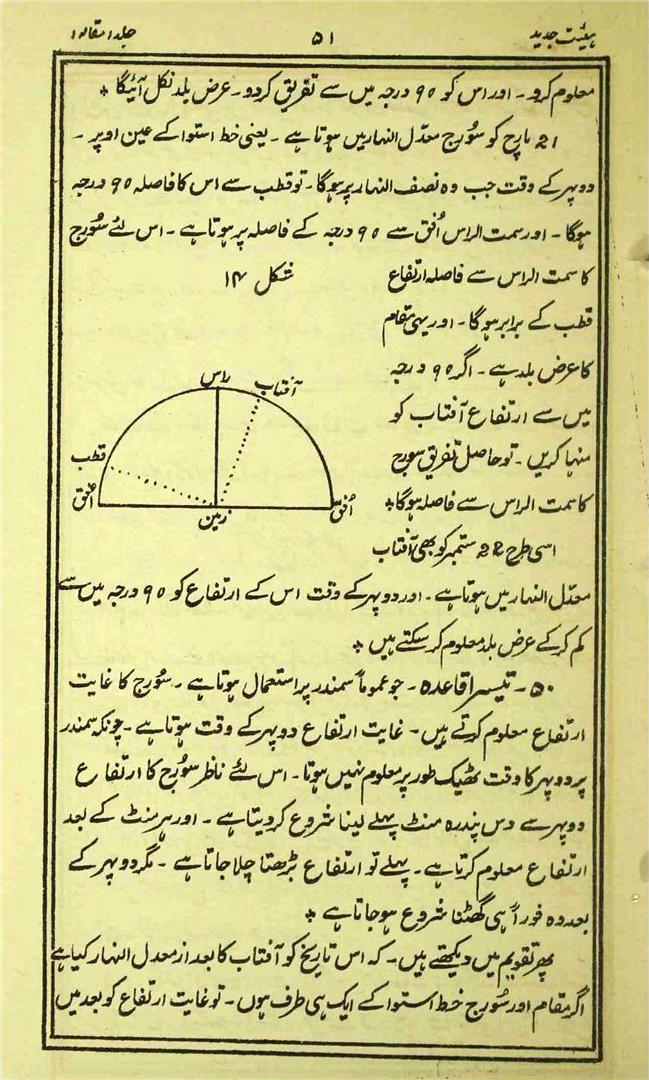 ہیئت جدید ۵۱ جلد ا مقالہ ا
معلوم کرو۔ اور اس کو ۹۰ درجہ میں سے تفریق کردو۔ عرض بلد نکل آئیگا *
21 مارچ کو سُورج معدّل النہار میں ہوتا ہے۔ یعنی خط استوا کے عین اوپر۔
دوپہر کے وقت جب وہ نصف النہار پر ہوگا۔ تو قطب سے اس کا فاصلہ ۹۰ درجہ
ہوگا۔ اور سمت الراس اُفق سے ۹۰ درجہ کے فاصلہ پر ہوتا ہے۔ اس لئے سُورج
کا سمت الراس سے فاصلہ ارتفاع
قطب کے برابر ہوگا۔ اور یہی مقام
کا عرض بلد ہے۔ اگر ۹۰ درجہ
میں سے ارتفاع آفتاب کو
منہا کریں۔ تو حاصل تفریق سورج
کا سمت الراس سے فاصلہ ہوگا *
شکل ۱۴
راس
آفتاب
قطب
اُفق
زمین
اُفق
اسی طرح 22 ستمبر کو بھی آفتاب
معدّل النہار میں ہوتا ہے۔ اور دوپہر کے وقت اس کے ارتفاع کو ۹۰ درجہ میں سے
کم کرکے عرض بلد معلوم کر سکتے ہیں *
۵۰۔ تیسرا قاعدہ۔ جو عموماً سمندر پر استعمال ہوتا ہے۔ سُورج کا غایت
ارتفاع معلوم کرتے ہیں۔ غایت ارتفاع دوپہر کے وقت ہوتا ہے۔ چونکہ سمندر
پر دوپہر کا وقت ٹھیک طور پر معلوم نہیں ہوتا۔ اس لئے ناظر سُورج کا ارتفاع
دوپہر سے دس پندرہ منٹ پہلے لینا شروع کر دیتا ہے۔ اور ہر منٹ کے بعد
ارتفاع معلوم کرتا ہے۔ پہلے تو ارتفاع بڑھتا چلا جاتا ہے۔ مگر دوپہر کے
بعد وہ فوراً ہی گھٹنا شروع ہو جاتا ہے *
پھر تقویم میں دیکھتے ہیں۔ کہ اس تاریخ کو آفتاب کا بعد از معدل النہار کیا ہے
اگر مقام اور سُورج خط استوا کے ایک ہی طرف ہوں۔ تو غایت ارتفاع کو بعد میں